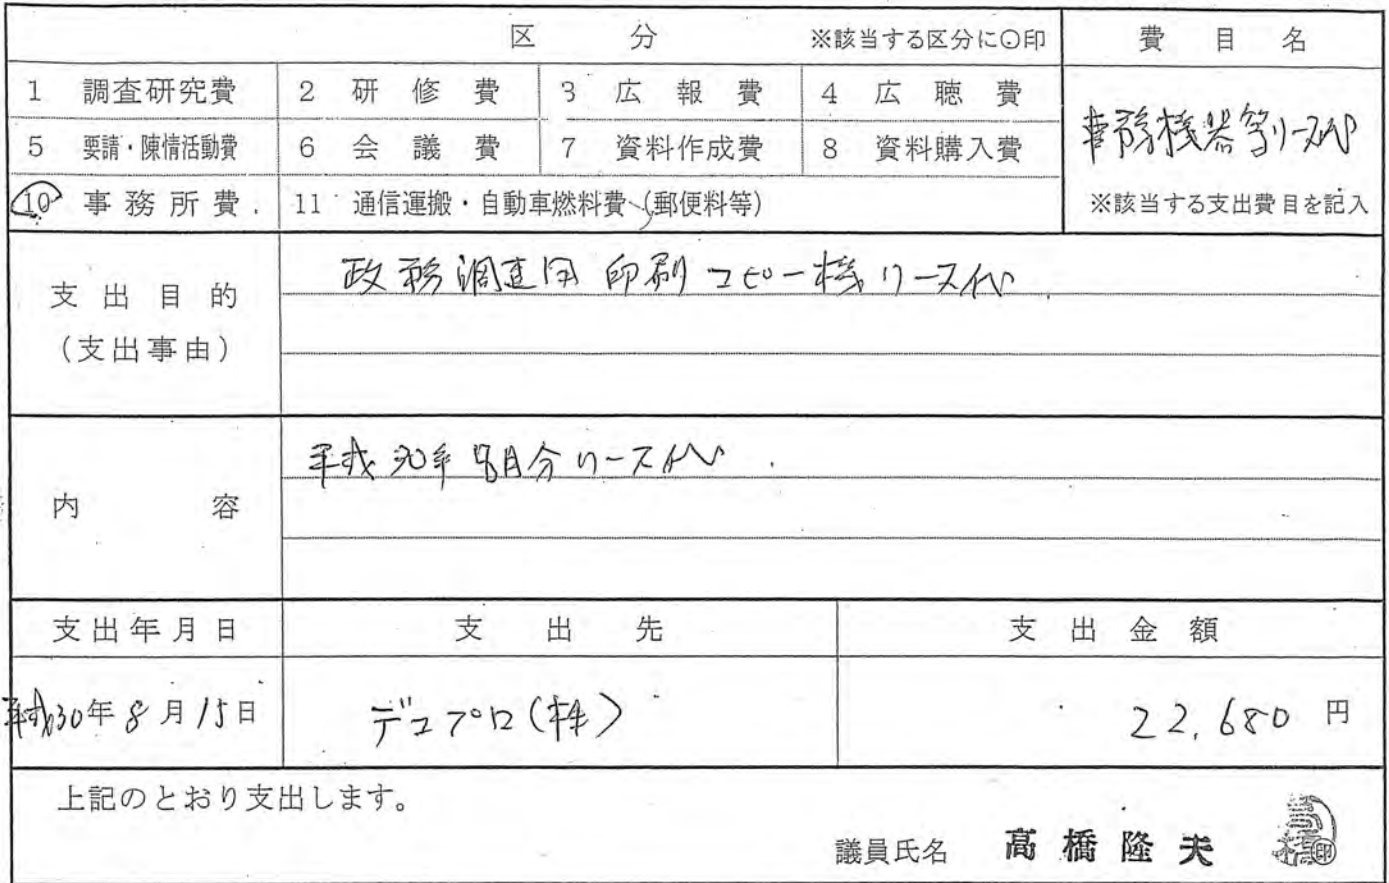 区 分 ※該当する区分に○印 費 目 名
1 調査研究費 2 研 修 費 3 広 報 費 4 広 聴 費
事務機器等リース代
5 要請・陳情活動費 6 会 議 費 7 資料作成費 8 資料購入費
10 事務所費 11 通信運搬・自動車燃料費(郵便料等) ※該当する支出費目を記入
支出目的
(支出事由)
政務調査用 印刷コピー機リース代
内 容
平成30年8月分リース代
支出年月日 支 出 先 支 出 金 額
平成30年8月15日 デュプロ(株) 22,680 円
上記のとおり支出します。
議員氏名 高橋隆夫 印